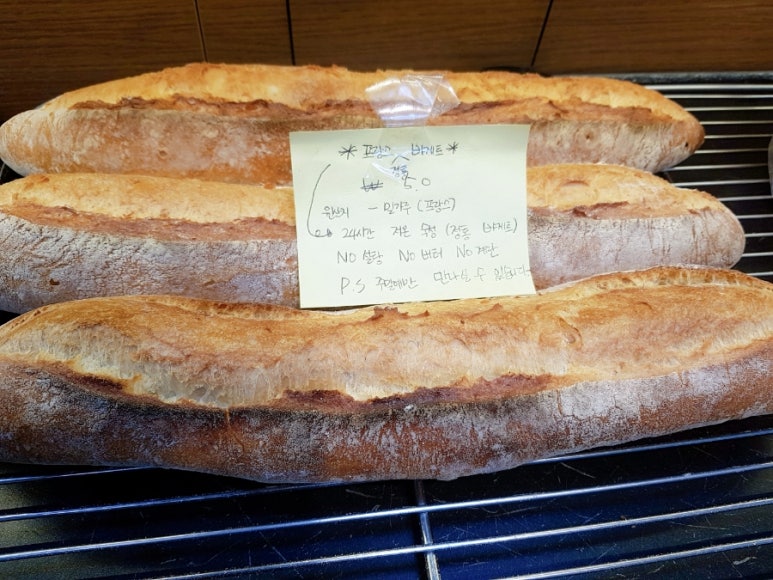 * 프랑스 바게트 *
정통
₩ 5.0
원산지 - 밀가루 (프랑스)
24시간 저온 숙성 (정통 바게트)
No 설탕 No 버터 No 계란
P.S 주말에만 만나실 수 있습니다